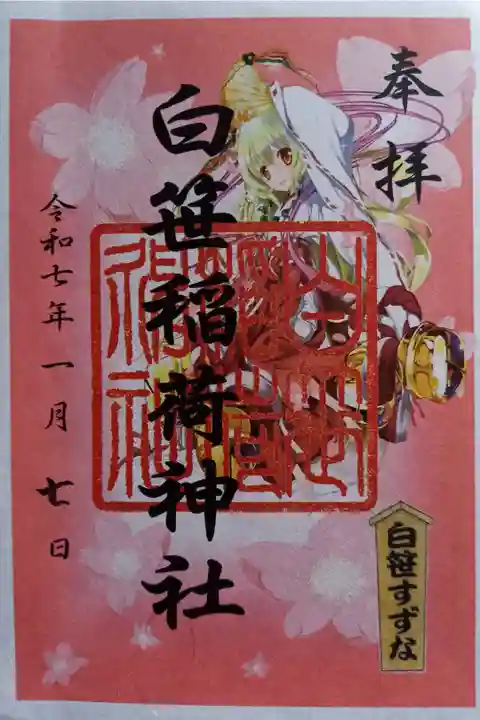 奉拝
白笹稲荷神社
令和七年一月七日
白笹すずな